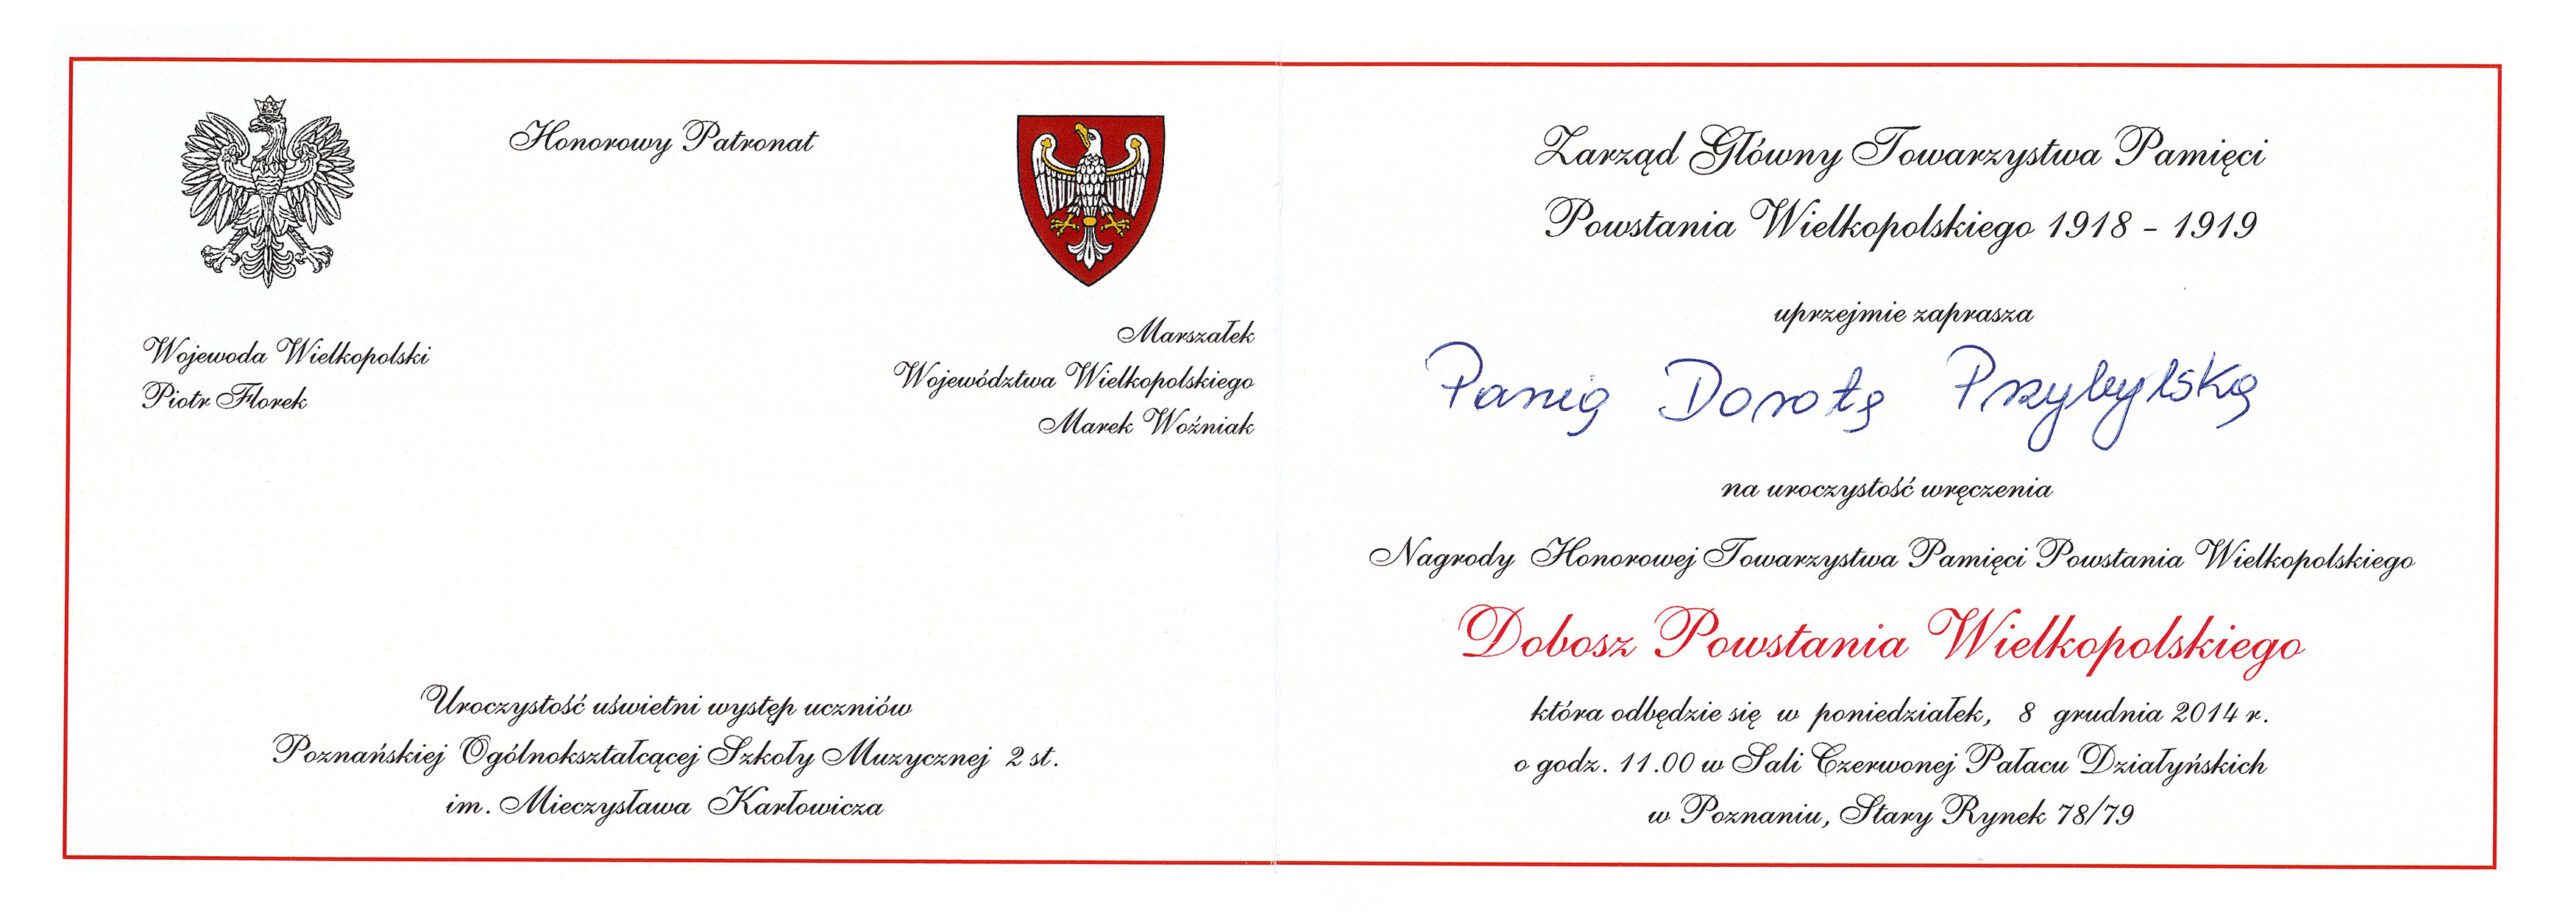 Honorowy Patronat
Wojewoda Wielkopolski
Piotr Florek
Marszałek
Województwa Wielkopolskiego
Marek Woźniak
Uroczystość uświetni występ uczniów
Poznańskiej Ogólnokształcącej Szkoły Muzycznej 2 st.
im. Mieczysława Karłowicza
Zarząd Główny Towarzystwa Pamięci
Powstania Wielkopolskiego 1918 - 1919
uprzejmie zaprasza
Panią Dorotę Przybylską
na uroczystość wręczenia
Nagrody Honorowej Towarzystwa Pamięci Powstania Wielkopolskiego
Dobosz Powstania Wielkopolskiego
która odbędzie się w poniedziałek, 8 grudnia 2014 r.
o godz. 11.00 w Sali Czerwonej Pałacu Działyńskich
w Poznaniu, Stary Rynek 78/79